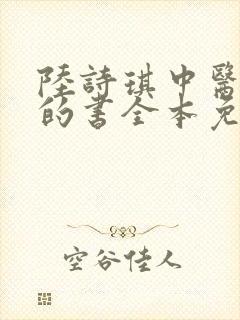 陸詩琪中醫
的書全本免
空谷佳人